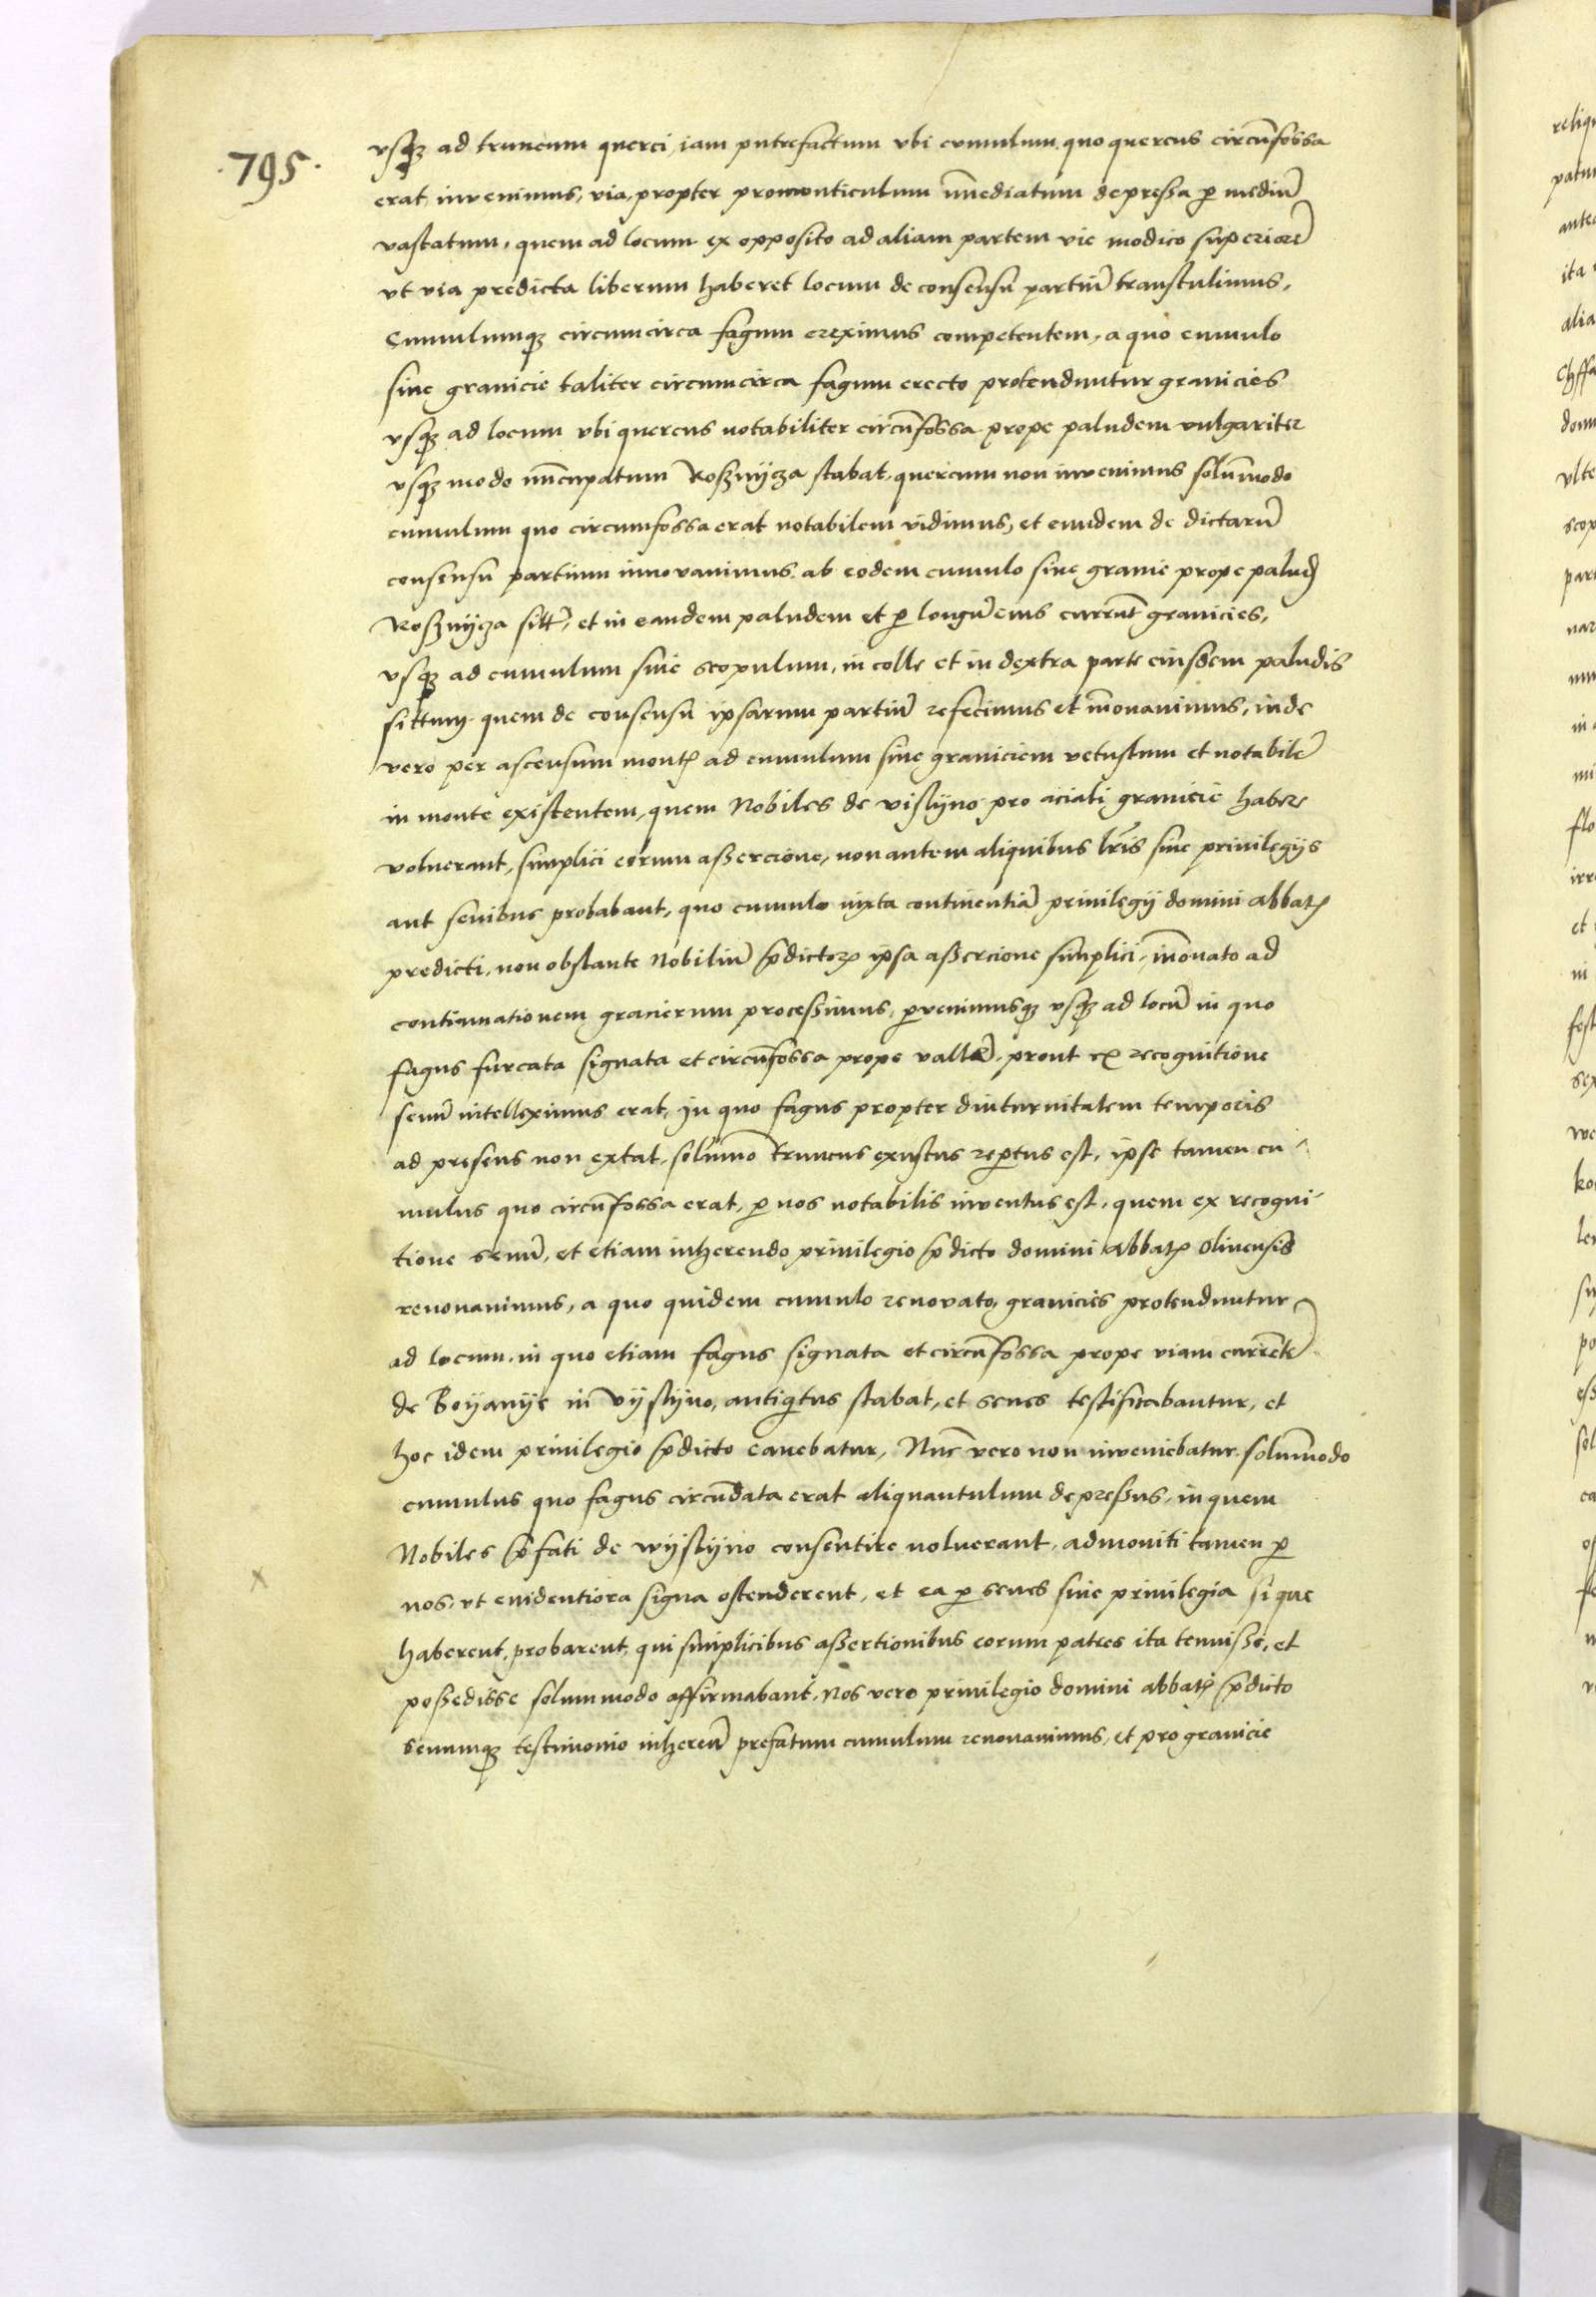 ·795·
vsq₃ ad truncum querci, iam putrefactum vbi cumulum, quo quercus circūfossa
erat invenimus, via, propter promonticulum īmediatum depressa ꝑ mediū
vastatum, quem ad locum ex opposito ad aliam partem vie modico superiorē
vt via predicta liberum haberet locum de consensu partiū transtulimus,
Cumulumq₃ circumcirca fagum ereximus competentem, a quo cumulo
siue granicie taliter circumcirca fagum erecto protenduntur granicies
vsq₃ ad locum vbi quercus notabiliter circūfossa prope paludem vulgariter
vsq₃ modo nūcupatum Rosznycza stabat, quercum non invenimus solūmodo
cumulum quo circumfossa erat notabilem vidimus, et eundem de dictarū
consensu partium innovauimus, ab eodem cumulo siue granie prope palud̄
Rosznycza sitt̄, et in eandem paludem et ꝑ longū eius currūt granicies,
vsq₃ ad cumulum siue scopulum, in colle et in dextra parte eiusdem paludis
sittum, quem de consensu ipsarum partiū refecimus et īnouauimus, inde
vero per ascensum montꝭ ad cumulum siue graniciem vetustum et notabilē
in monte existentem, quem Nobiles de vistyno pro aciali granicie habere
voluerant, simplici eorum assercione, non autem aliquibus lr̄is siue priuilegijs
aut senibus probabant, quo cumulo iuxta continentiā priuilegij domini abbatꝭ
predicti, non obstante Nobiliū p̄dictoꝝ ipsa assercione simplici, īnouato ad
continuationem gracierum processimus, ꝑvenimusq₃ vsq₃ ad locū in quo
fagus furcata signata et circūfossa prope vallē, prout ex recognitione
senū intelleximus erat, in quo fagus propter diuturnitatem temporis
ad presens non extat, solūmo truncus exustus reꝑtus est, ipse tamen cu-
mulus quo circūfossa erat, ꝑ nos notabilis inventus est, quem ex recogni-
tione senū, et etiam inherendo priuilegio p̄dicto domini Abbatꝭ Oliuensis
renouauimus, a quo quidem cumulo renovato, granicies protenduntur
ad locum, in quo etiam fagus signata et circūfossa prope viam currētē
de Boyanye in vystyno, antiq̄tus stabat, et senes testificabantur, et
hoc idem priuilegio p̄dicto cauebatur, Nūc vero non inveniebatur, solūmodo
cumulus quo fagus circūdata erat aliquantulum depressus, in quem
Nobiles p̄fati de wystyno consentire noluerant, admoniti tamen ꝑ
nos, vt euidentiora signa ostenderent, et ea ꝑ senes siue priuilegia si que
haberent, probarent, qui simplicibus assertionibus eorum patres ita tenuisse, et
possedisse solummodo affirmabant, Nos vero priuilegio domini abbatꝭ p̄dicto
senumq₃ testimonio inheren̄ prefatum cumulum renouauimus, et pro granicie